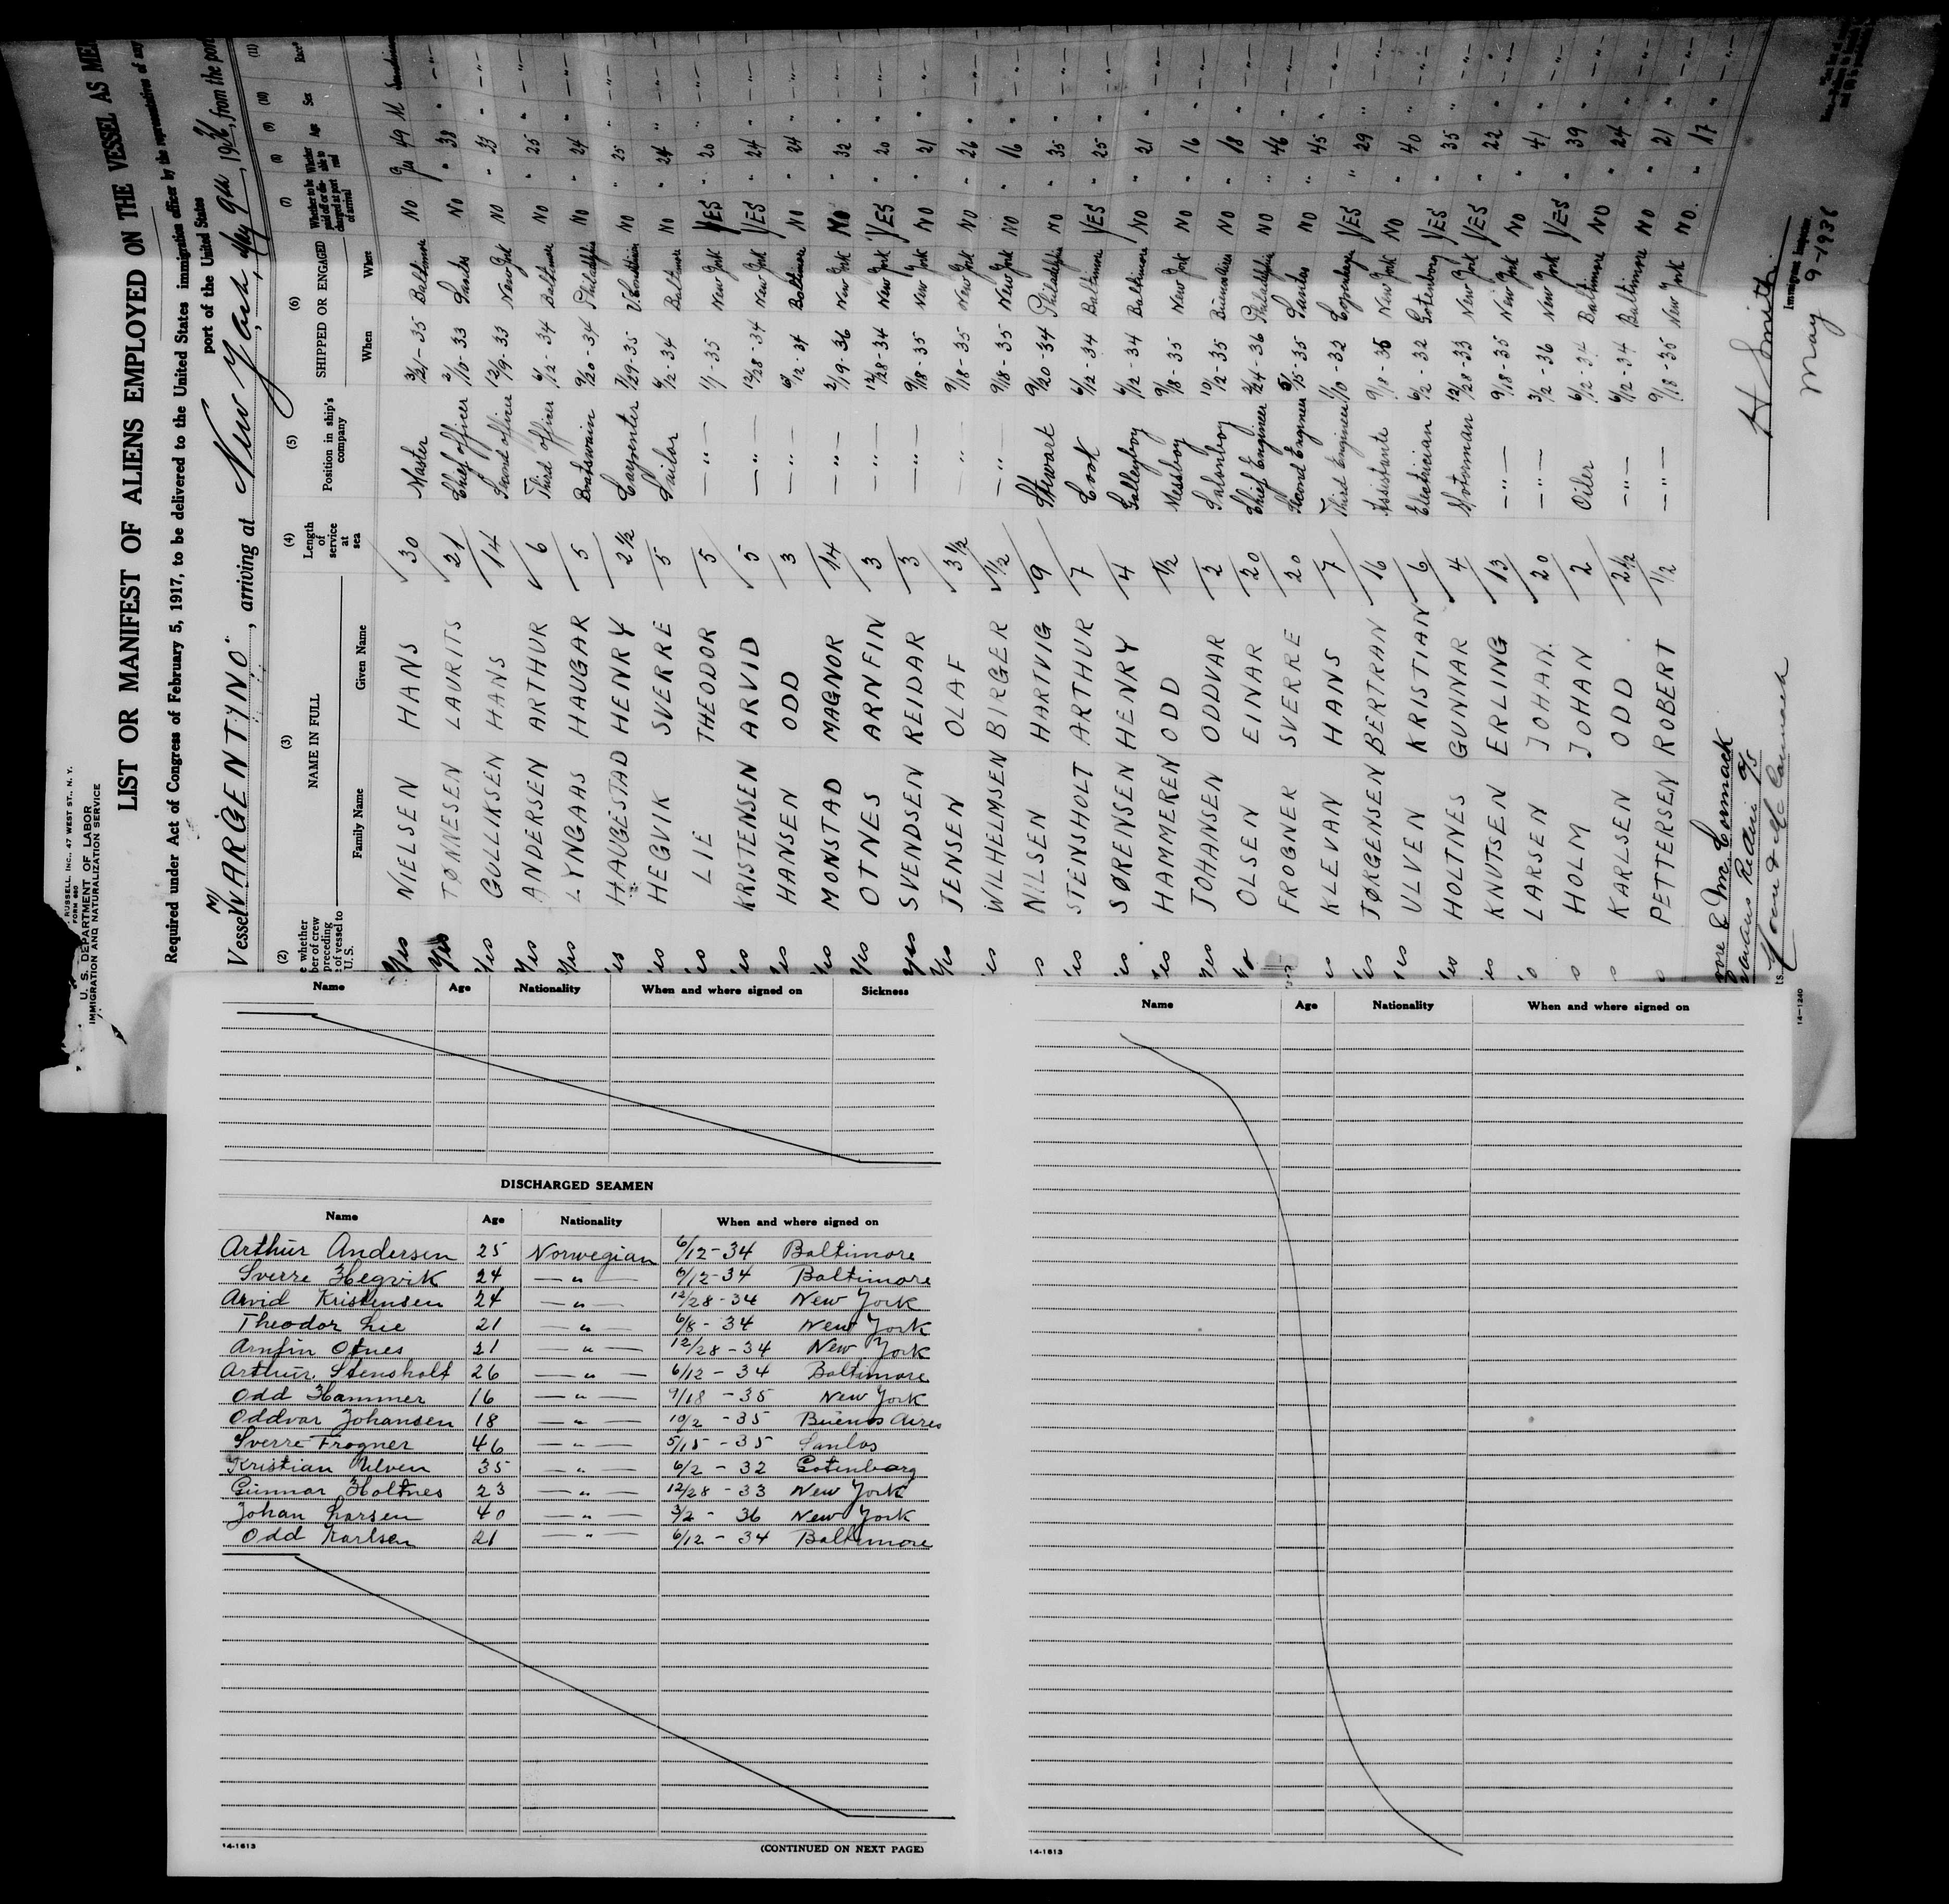 RUSSELL, INC., 47 WEST ST., N. Y.
FORM 680
U. S. DEPARTMENT OF LABOR
IMMIGRATION AND NATURALIZATION SERVICE
LIST OR MANIFEST OF ALIENS EMPLOYED ON THE VESSEL AS
Required under Act of Congress of February 5, 1917, to be delivered to the United States immigration officer by the representatives of any
port of the United States
Vessel M/S "ARGENTINO", arriving at New York, May 9th, 1936, from the port
(2) (3) (4) (5) (6) (7) (8) (9) (10) (11)
whether
preceding
of vessel to
U. S.
NAME IN FULL
Family Name Given Name
Length of service at sea
Position in ship's company
SHIPPED OR ENGAGED
When Where
Whether to be paid off or discharged at port of arrival
Whether able to read
Age Sex Race
Yes NIELSEN HANS 30 Master 3/21-35 Baltimore NO Yes 49 M
Yes TØNNESEN LAURITS 21 Chief officer 2/10-33 Santos NO " 38 " — " —
Yes GULLIKSEN HANS 14 Second officer 12/9-33 New York NO " 23 " — " —
Yes ANDERSEN ARTHUR 6 Third officer 6/12-34 Baltimore NO " 25 " — " —
Yes LYNGAAS HAUGAR 5 Boatswain 9/20-34 Philadelphia NO " 24 " — " —
es HAUGESTAD HENRY 2 1/2 Carpenter 7/29-35 NO " 25 " — " —
es HEGVIK SVERRE 5 Sailor 6/12-34 Baltimore NO " 24 " — " —
es LIE THEODOR 5 — " — 1/1-35 New York YES " 20 " — " —
es KRISTENSEN ARVID 5 — " — 12/28-34 New York YES " 24 " — " —
es HANSEN ODD 3 — " — 6/12-34 Baltimore NO " 24 " — " —
Yes MONSTAD MAGNOR 14 — " — 2/19-36 New York NO " 32 " — " —
Yes OTNES ARNFIN 3 — " — 12/28-34 New York YES " 20 " — " —
Yes SVENDSEN REIDAR 3 — " — 9/18-35 New York NO " 21 " — " —
Yes JENSEN OLAF 3 1/2 — " — 9/18-35 New York NO " 26 " — " —
es WILHELMSEN BIRGER 1/2 — " — 9/18-35 New York NO " 16 " — " —
s NILSEN HARTVIG 9 Stewart 9/20-34 Philadelphia NO " 35 " — " —
es STENSHOLT ARTHUR 7 Cook 6/12-34 Baltimore YES " 25 " — " —
es SØRENSEN HENRY 4 Galleyboy 6/12-34 Baltimore NO " 21 " — " —
es HAMMEREN ODD 1/2 Messboy 9/18-35 New York NO " 16 " — " —
Yes JOHANSEN ODDVAR 2 Salonboy 10/12-35 NO " 18 " — " —
OLSEN EINAR 20 Chief Engineer 2/24-36 Philadelphia NO " 46 " — " —
FROGNER SVERRE 20 Second Engineer 5/15-35 Santos NO " 45 " — " —
es KLEVAN HANS 7 Third Engineer 1/10-32 Copenhagen YES " 29 " — " —
es JØRGENSEN BERTRAN 16 Assistente 9/18-35 New York NO " 40 " — " —
Yes ULVEN KRISTIAN 6 Electrician 6/2-32 Gotenborg YES " 35 " — " —
es HOLTNES GUNNAR 4 Motorman 12/28-33 New York YES " 22 " — " —
es KNUTSEN ERLING 13 — " — 9/18-35 New York NO " 41 " — " —
LARSEN JOHAN 20 — " — 3/2-36 New York YES " 39 " — " —
s HOLM JOHAN 2 Oiler 6/12-34 Baltimore NO " 24 " — " —
s KARLSEN ODD 2 1/2 — " — 6/12-34 Baltimore NO " 21 " — " —
s PETTERSEN ROBERT 1/2 — " — 9/18-35 New York NO " 17 " — " —
Mc Cormack
H Smith
Immigrant Inspector
May 9-1936
14-1240
Name Age Nationality When and where signed on Sickness
DISCHARGED SEAMEN
Name Age Nationality When and where signed on
Arthur Andersen 25 Norwegian 6/12-34 Baltimore
Sverre Hegvik 24 — " — 6/12-34 Baltimore
Arvid Kristensen 24 — " — 12/28-34 New York
Theodor Lie 21 — " — 6/8-34 New York
Arnfin Otnes 21 — " — 12/28-34 New York
Arthur Stensholt 26 — " — 6/12-34 Baltimore
Odd Hammer 16 — " — 9/18-35 New York
Oddvar Johansen 18 — " — 10/2-35 Buenos Aires
Sverre Frogner 46 — " — 5/15-35 Santos
Kristian Ulven 35 — " — 6/2-32 Gotenborg
Gunnar Holtnes 23 — " — 12/28-33 New York
Johan Larsen 40 — " — 3/2-36 New York
Odd Karlsen 21 — " — 6/12-34 Baltimore
14-1613
(CONTINUED ON NEXT PAGE)
Name Age Nationality When and where signed on
14-1613